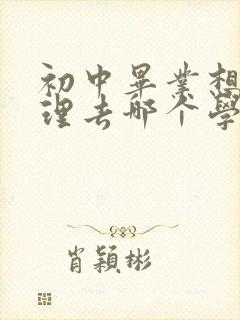 初中畢業想
理去哪个學
肖穎彬